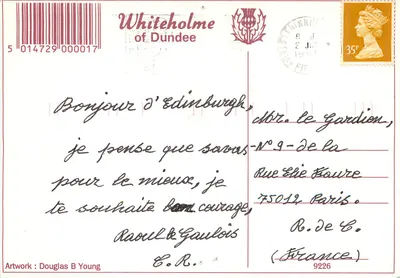 Whiteholme
of Dundee
5 014729 000017
35P
Bonjour d'Edinburgh,
je pense que savas
pour le mieux, je
te souhaite bon courage,
Raoul le Gaulois
C.R.
Mr. le Gardien,
N° 9 - de la
Rue Elie Faure
75012 Paris.
R. de C.
(France)
Artwork : Douglas B Young
9226